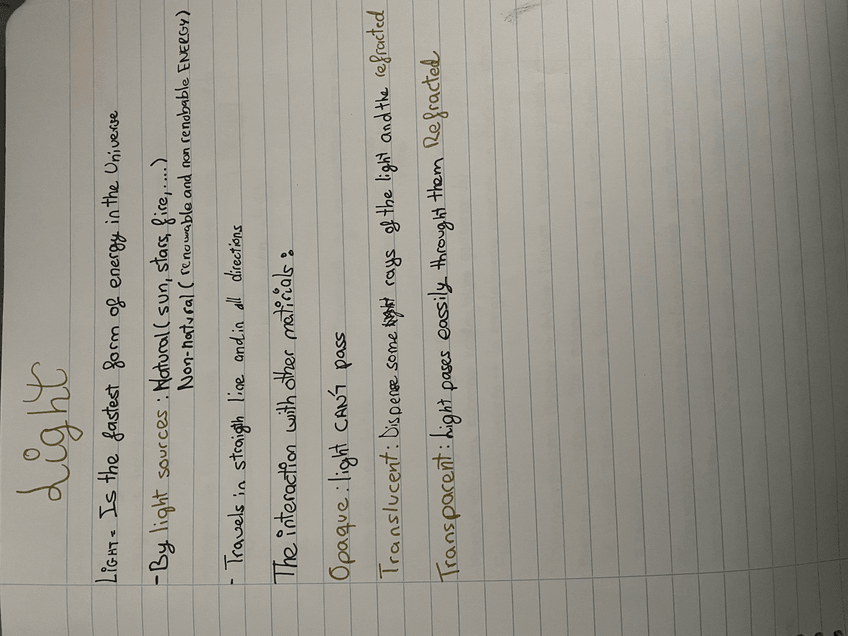 Light
LIGHT= Is the fastest form of energy in the Universe
- By light sources: Natural (sun, stars, fire,....)
Non-natural (renowable and non renobable ENERGY)
- Travels in straigth line and in all directions
The interaction with other matirials:
Opaque: light CAN'T pass
Translucent: Disperse some rays of the light and the refracted
Transparent: Light pases eassily throught them Refracted